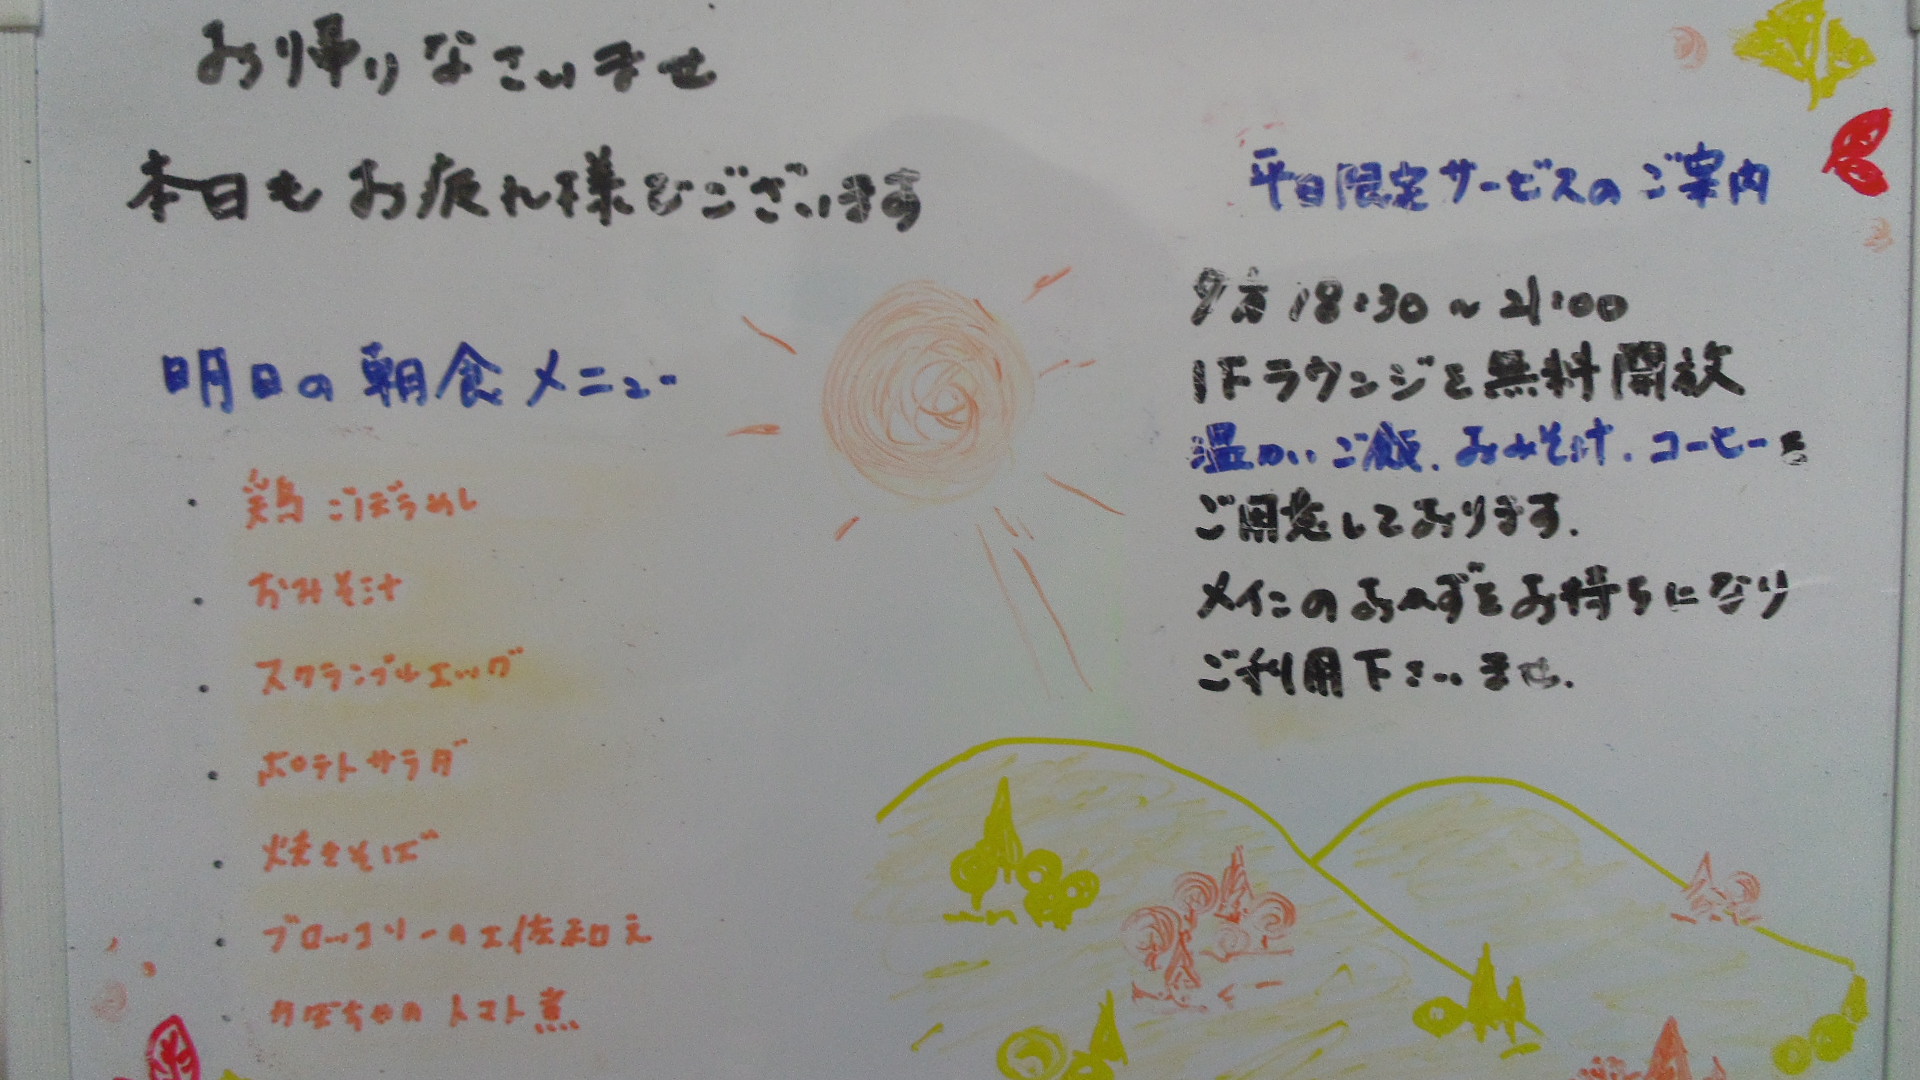 お帰りなさいませ
本日もお疲れ様でございます
明日の朝食メニュー
・鶏ごぼうめし
・おみそ汁
・スクランブルエッグ
・ポテトサラダ
・焼きそば
・ブロッコリーの土佐和え
・かぼちゃのトマト煮
平日限定サービスのご案内
夕方 18:30～21:00
1Fラウンジを無料開放
温かいご飯、おみそ汁、コーヒーを
ご用意しております。
メインのおかずをお持ちになり
ご利用下さいませ。